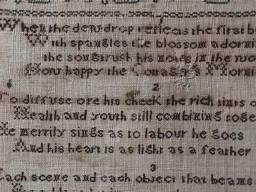 When the dewdrop reflects the first be
With spangles the blossom adorni
the songster his notes in the woo
How happy the Cottager's Morni
2
To diffuse ore his cheek the rich tints o
Health and youth still combining toge
He merrily sings as to labour he goes
And his heart is as light as a feather
3
Each scene and each object that beams